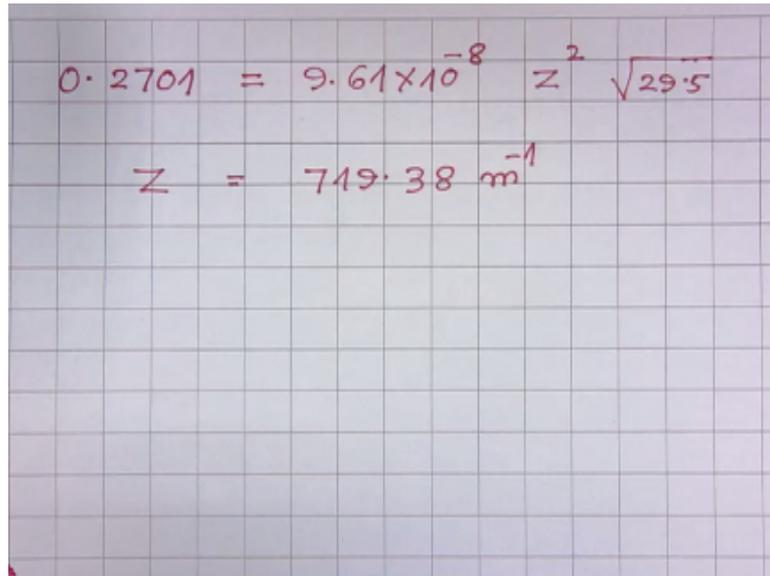 0.2701 = 9.61×10⁻⁸ z² √29.5
Z = 719.38 m⁻¹